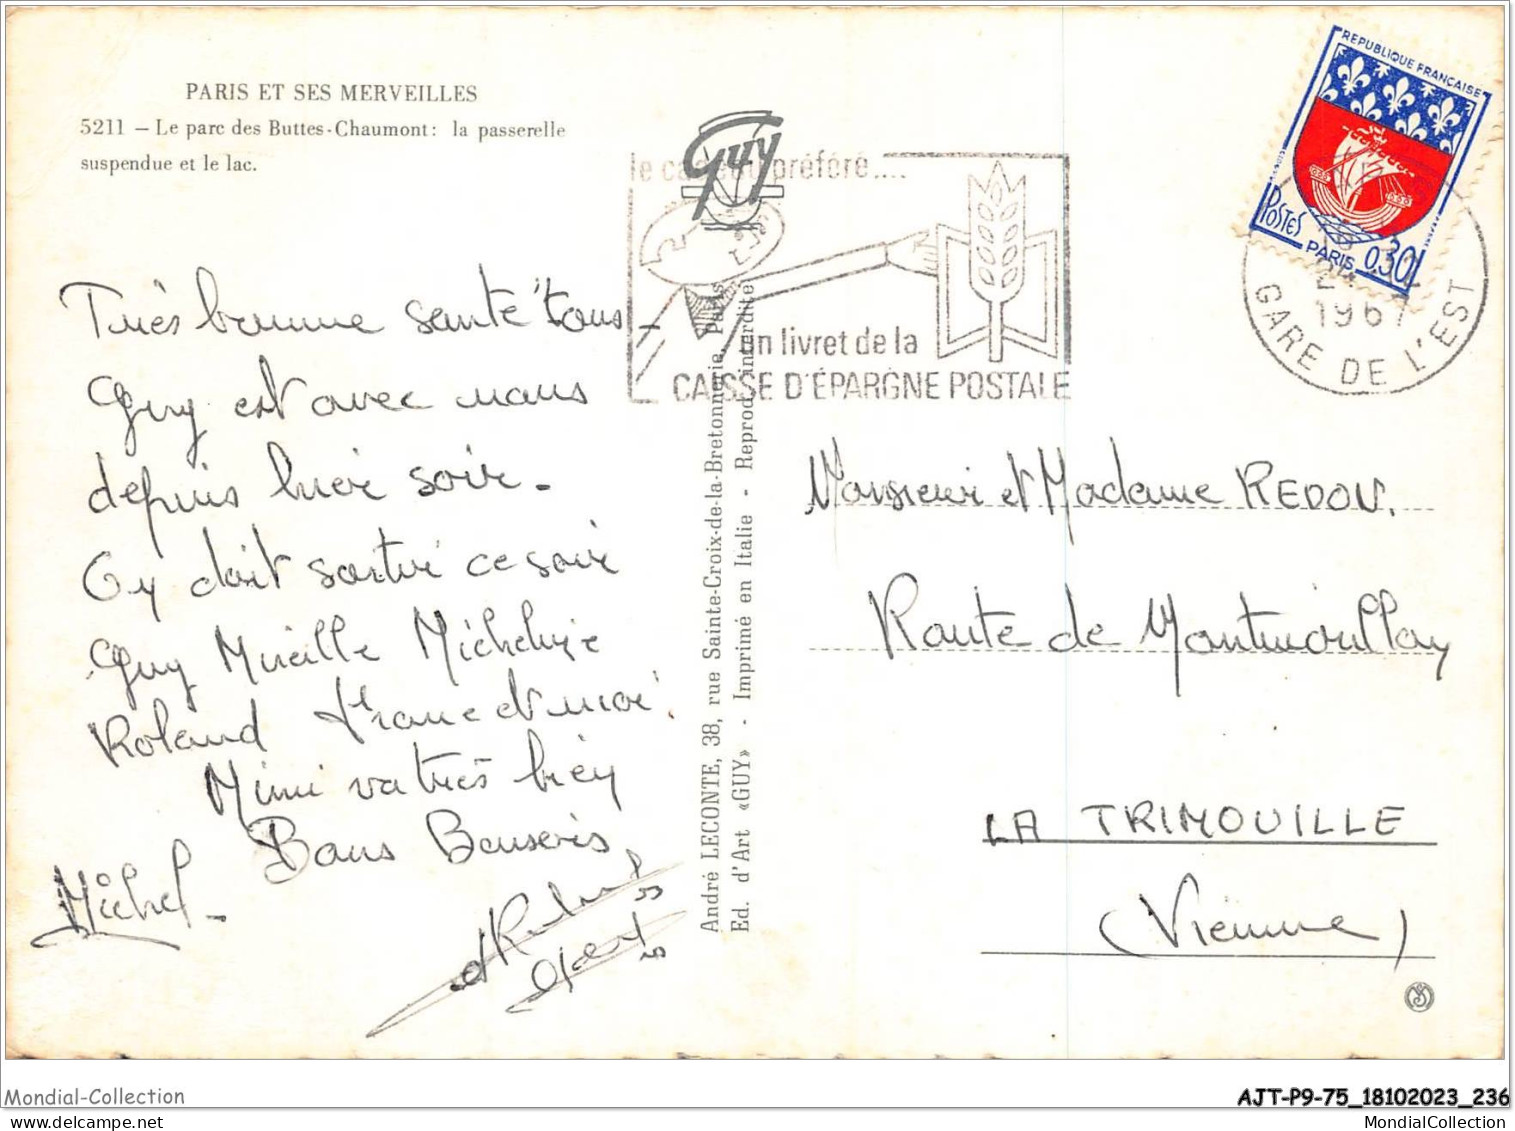 PARIS ET SES MERVEILLES
5211 — Le parc des Buttes-Chaumont: la passerelle
suspendue et le lac.
Guy
le cadeau préféré....
un livret de la
CAISSE D'ÉPARGNE POSTALE
REPUBLIQUE FRANÇAISE
POSTES
PARIS
0.30
1967
GARE DE L'EST
Très bonne santé tous
Guy est avec nous
depuis hier soir.
On doit sortir ce soir
Guy Mireille Micheline
Roland France et moi
Mimi va très bien
Bons Baisers
Michel
André LECONTE, 38, rue Sainte-Croix-de-la-Bretonnerie, Paris
Ed. d'Art «GUY» - Imprimé en Italie - Reprod. interdite
Monsieur et Madame REDON.
Route de Montmorillon
LA TRIMOUILLE
(Vienne)
Mondial-Collection
AJT-P9-75_18102023_236
MondialCollection